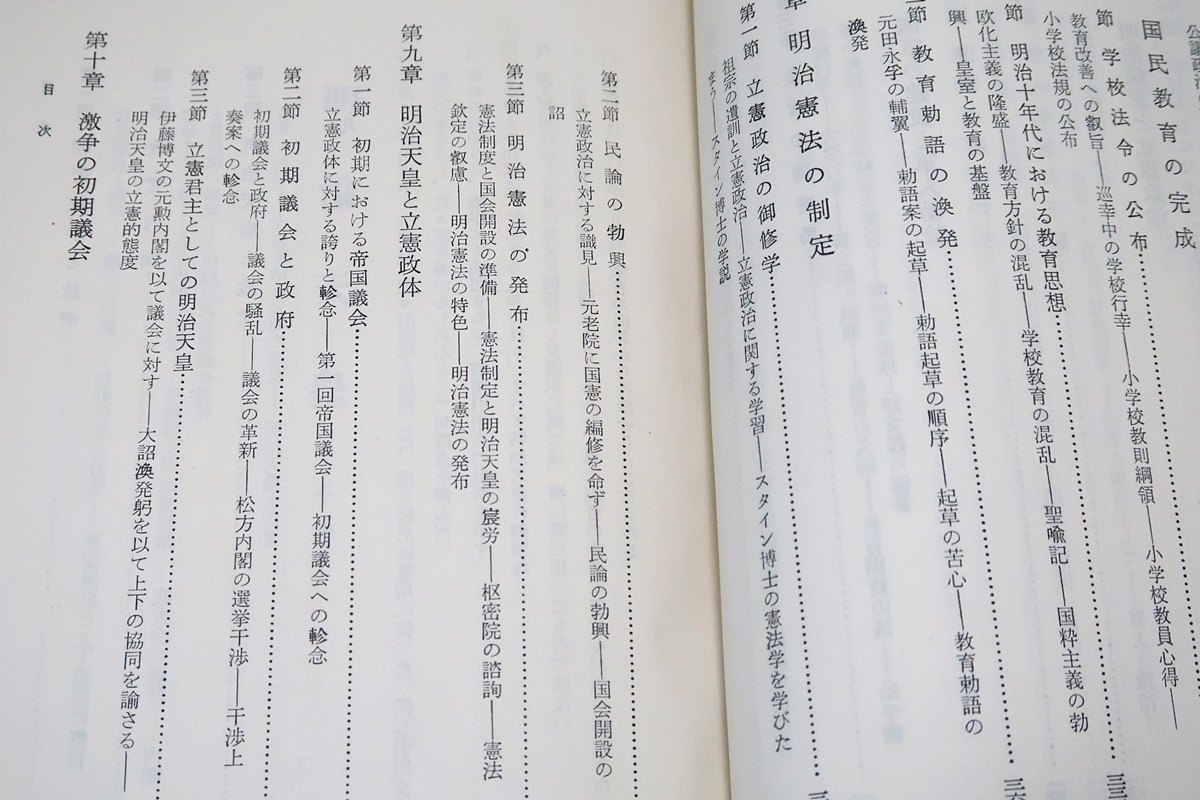 国民教育の完成
節　学校法令の公布
教育改善への叡旨――巡幸中の学校行幸――小学校教則綱領――小学校教員心得――
小学校法規の公布
節　明治十年代における教育思想
欧化主義の隆盛――教育方針の混乱――学校教育の混乱――聖喩記――国粋主義の勃
興――皇室と教育の基盤
節　教育勅語の渙発
元田永孚の輔翼――勅語案の起草――勅語起草の順序――起草の苦心――教育勅語の
渙発
章　明治憲法の制定
第一節　立憲政治の御修学
祖宗の遺訓と立憲政治――立憲政治に関する学習――スタイン博士の憲法学を学びた
まう――スタイン博士の学説
第二節　民論の勃興
立憲政治に対する識見――元老院に国憲の編修を命ず――民論の勃興――国会開設の
詔
第三節　明治憲法の発布
憲法制度と国会開設の準備――憲法制定と明治天皇の宸労――枢密院の諮詢――憲法
欽定の叡慮――明治憲法の特色――明治憲法の発布
第九章　明治天皇と立憲政体
第一節　初期における帝国議会
立憲政体に対する誇りと軫念――第一回帝国議会――初期議会への軫念
第二節　初期議会と政府
初期議会と政府――議会の騒乱――議会の革新――松方内閣の選挙干渉――干渉上
奏案への軫念
第三節　立憲君主としての明治天皇
伊藤博文の元勲内閣を以て議会に対す――大詔渙発躬を以て上下の協同を諭さる――
明治天皇の立憲的態度
第十章　激争の初期議会
目次